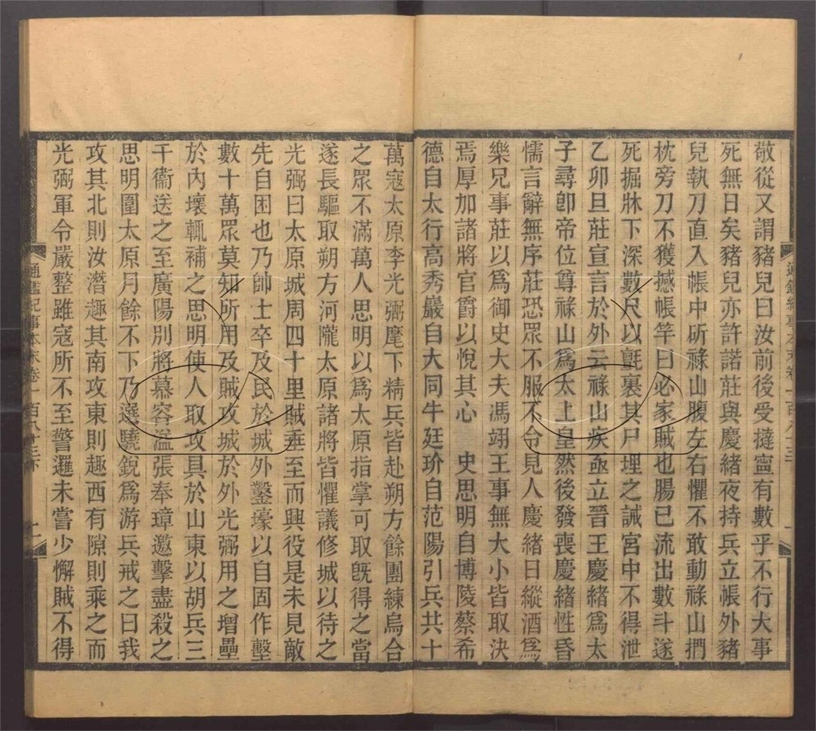 敬從又謂豬兒曰汝前後受撻寧有數乎不行大事
死無日矣豬兒亦許諾莊與慶緒夜持兵立帳外豬
兒執刀直入帳中斫祿山腹左右懼不敢動祿山捫
枕旁刀不獲撼帳竿曰必家賊也腸已流出數斗遂
死掘牀下深數尺以氈裹其尸埋之誡宮中不得泄
乙卯旦莊宣言於外云祿山疾亟立晉王慶緒爲太
子尋卽帝位尊祿山爲太上皇然後發喪慶緒性昏
懦言辭無序莊恐眾不服不令見人慶緒日縱酒爲
樂兄事莊以爲御史大夫馮翊王事無大小皆取決
焉厚加諸將官爵以悅其心 史思明自博陵蔡希
德自太行高秀巖自大同牛廷玠自范陽引兵共十
萬寇太原李光弼麾下精兵皆赴朔方餘團練烏合
之眾不滿萬人思明以爲太原指掌可取旣得之當
遂長驅取朔方河隴太原諸將皆懼議修城以待之
光弼曰太原城周四十里賊垂至而興役是未見敵
先自困也乃帥士卒及民於城外鑿壕以自固作墼
數十萬眾莫知所用及賊攻城於外光弼用之增壘
於內壞輒補之思明使人取攻具於山東以胡兵三
千衞送之至廣陽別將慕容溢張奉璋邀擊盡殺之
思明圍太原月餘不下乃選驍銳爲游兵戒之曰我
攻其北則汝潛趣其南攻東則趣西有隙則乘之而
光弼軍令嚴整雖寇所不至警邏未嘗少懈賊不得
通鑑紀事本末卷一百八十三
通鑑紀事本末卷一百八十三下